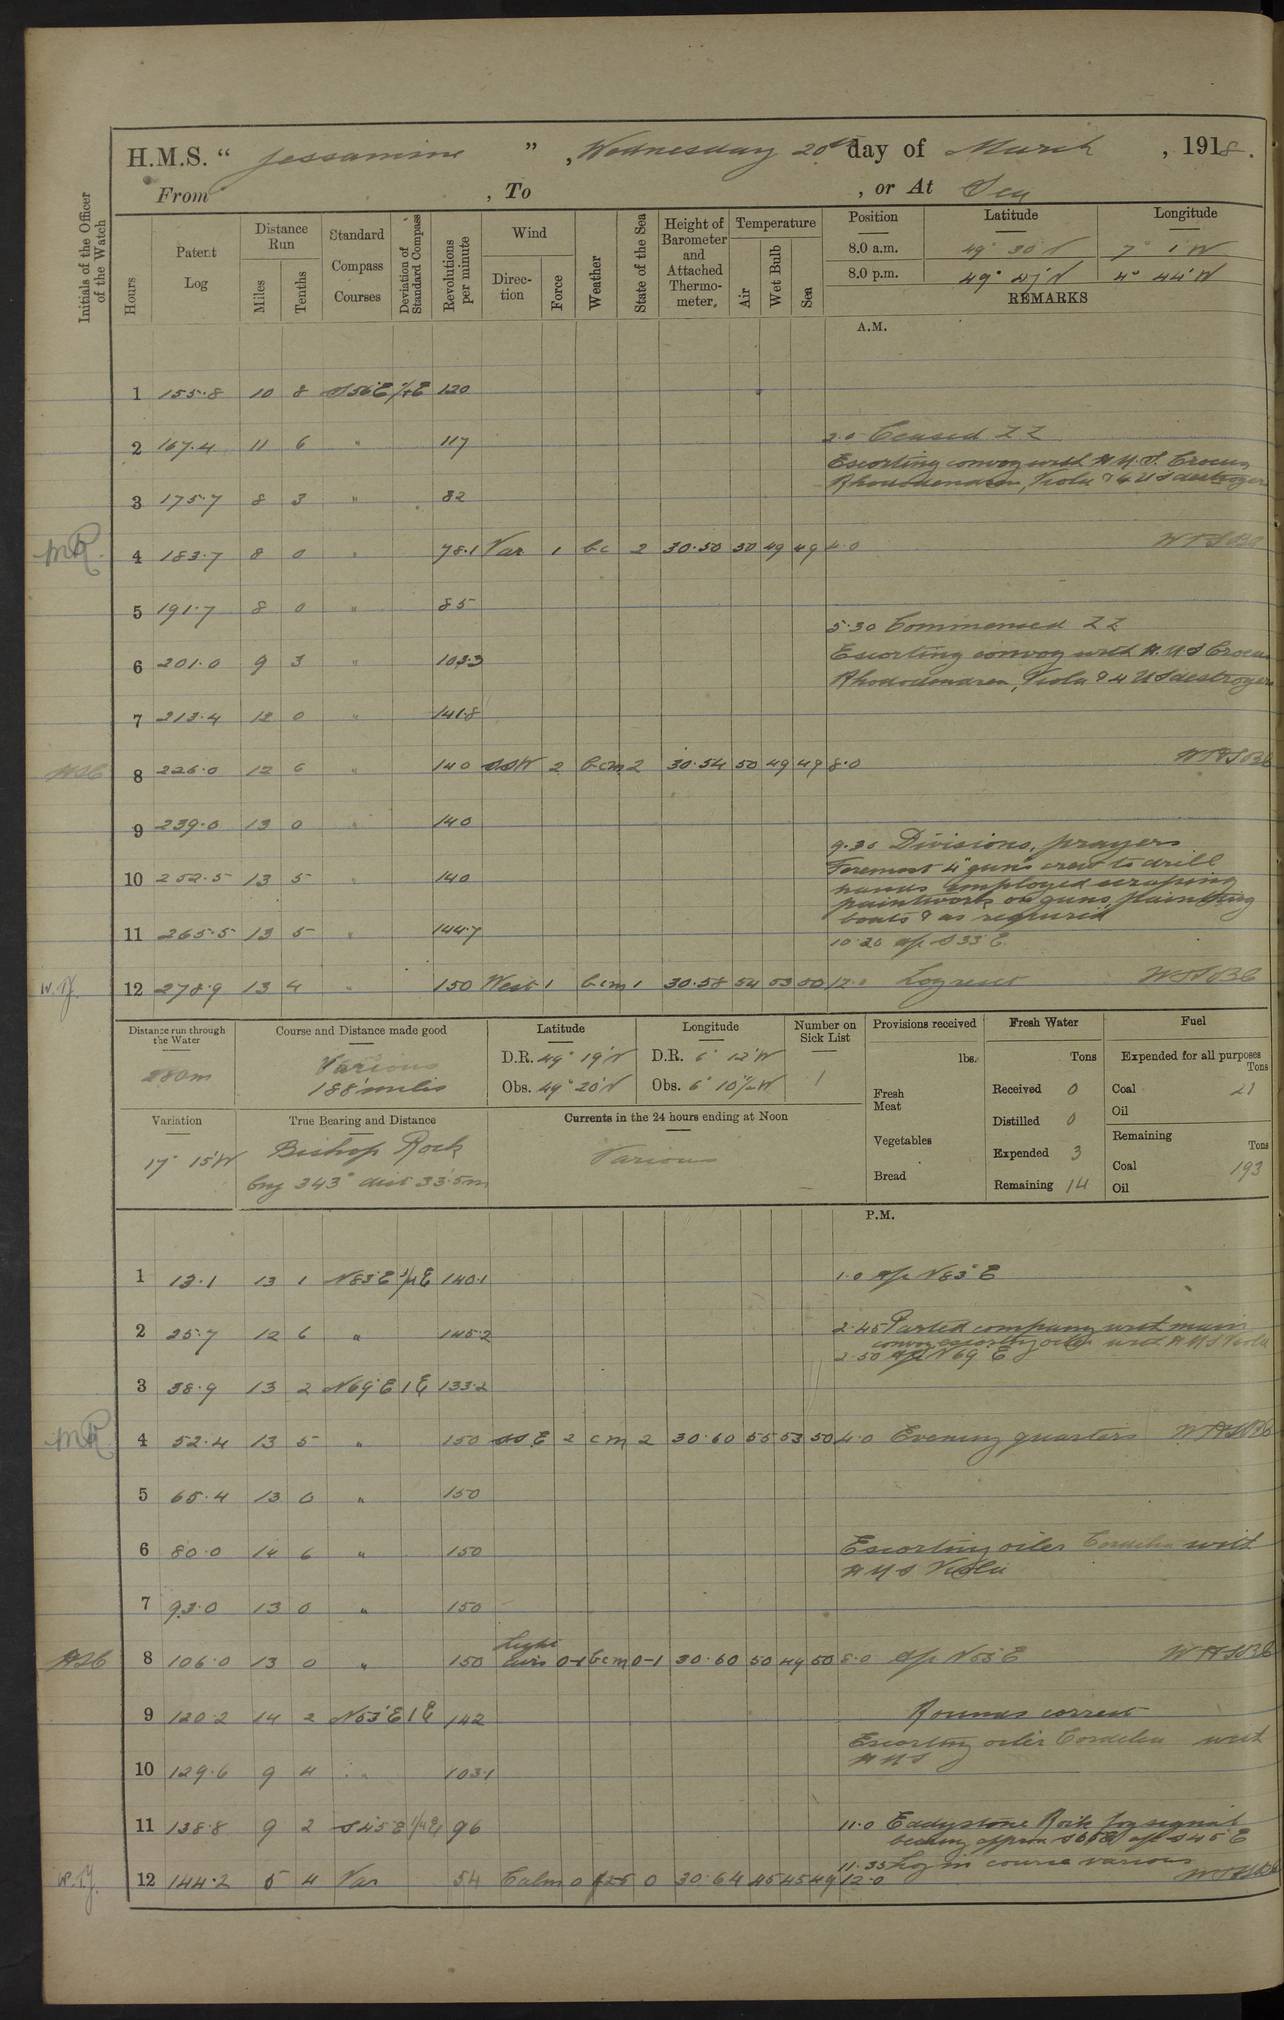 H.M.S. “ Jessamine ” , Wednesday 20th day of March , 1918.
From , To , or At Sea
Initials of the Officer of the Watch
Hours
Patent Log
Distance Run
Miles
Tenths
Standard Compass Courses
Deviation of Standard Compass
Revolutions per minute
Wind
Direction
Force
Weather
State of the Sea
Height of Barometer and Attached Thermometer.
Temperature
Air
Wet Bulb
Sea
Position Latitude Longitude
8.0 a.m. 49° 30' N 7° 1' W
8.0 p.m. 49° N 4° 44' W
REMARKS
A.M.
1 155.8 10 8 S56°E ¼E 120
2 167.4 11 6 " 117 2.0 Ceased ZZ
Escorting convoy with H.M.S. Crocus
Rhododendron, Viola & 4 US destroyers
3 175.7 8 3 " 82
4 183.7 8 0 " 78.1 Var 1 bc 2 30.50 50 49 49 4.0
5 191.7 8 0 " 85
5.30 Commenced ZZ
6 201.0 9 3 " 103.3 Escorting convoy with H.M.S Crocus
Rhododendron, Viola & 4 US destroyers
7 213.4 12 0 " 141.8
8 226.0 12 6 " 140 SSW 2 bcm 2 30.54 50 49 49 8.0
9 239.0 13 0 " 140
9.30 Divisions, prayers
10 252.5 13 5 " 140 Foremost 4" guns crew to drill
hands employed scraping
paintwork on guns, painting
boats & as required
11 265.5 13 5 " 144.7 10.20 a/c S33°E
12 278.9 13 4 " 150 West 1 bcm 1 30.58 54 53 50 12.0 Log reset
Distance run through the Water
280m
Course and Distance made good
Various
188 miles
Latitude
D.R. 49° 19' N
Obs. 49° 20' N
Longitude
D.R. 6° 12' W
Obs. 6° 10½' W
Number on Sick List
1
Provisions received
lbs.
Fresh Meat
Vegetables
Bread
Fresh Water
Tons
Received 0
Distilled 0
Expended 3
Remaining 14
Fuel
Expended for all purposes
Tons
Coal 21
Oil
Remaining
Tons
Coal 193
Oil
Variation
17° 15' W
True Bearing and Distance
Bishop Rock
brg 343° dist 33.5m
Currents in the 24 hours ending at Noon
Various
P.M.
1 13.1 13 1 N83°E ¾E 140.1 1.0 a/c N83°E
2 25.7 12 6 " 145.2 2.45 Parted company with main
convoy escorting oiler with HMS Viola
2.50 a/c N69°E
3 38.9 13 2 N69°E 1E 133.2
4 52.4 13 5 " 150 SSE 2 cm 2 30.60 55 53 50 4.0 Evening quarters
5 65.4 13 0 " 150
6 80.0 14 6 " 150 Escorting oiler Cordelia with
HMS Viola
7 93.0 13 0 " 150
8 106.0 13 0 " 150 Light airs 0-1 bcm 0-1 30.60 50 49 50 8.0 a/c N53°E
9 120.2 14 2 N53°E 1E 142 Rounds correct
Escorting oiler Cordelia with
HMS
10 129.6 9 4 " 103.1
11 138.8 9 2 S45°E ¼E 96 11.0 Eddystone Rock fog signal
bearing approx a/c S45°E
11.35 Log in course various
12 144.2 5 4 Var 54 Calm 0 0 30.64 45 45 49 12.0